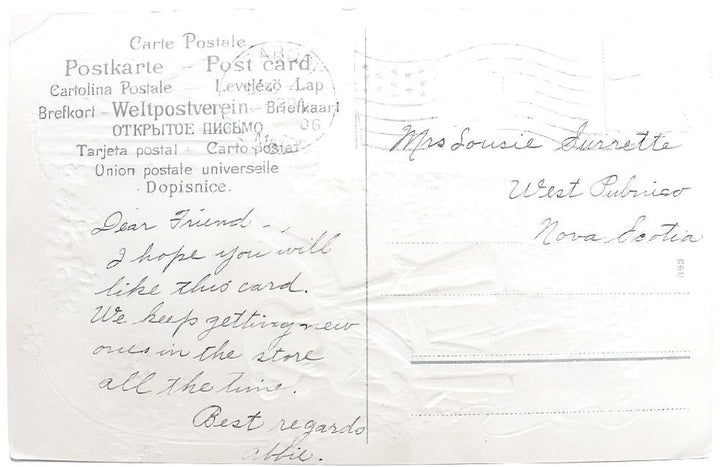 Carte Postale
Postkarte – Post card
Cartolina Postale – Levelézö-Lap
Brefkort – Weltpostverein – Briefkaart
ОТКРЫТОЕ ПИСЬМО
Tarjeta postal – Carto postal
Union postale universelle
Dopisnice.
06
Mrs Lousie Surrette
West Pubnico
Nova Scotia
393
Dear Friend - -
I hope you will
like this card.
We keep getting new
ones in the store
all the time.
Best regards
Abbie.